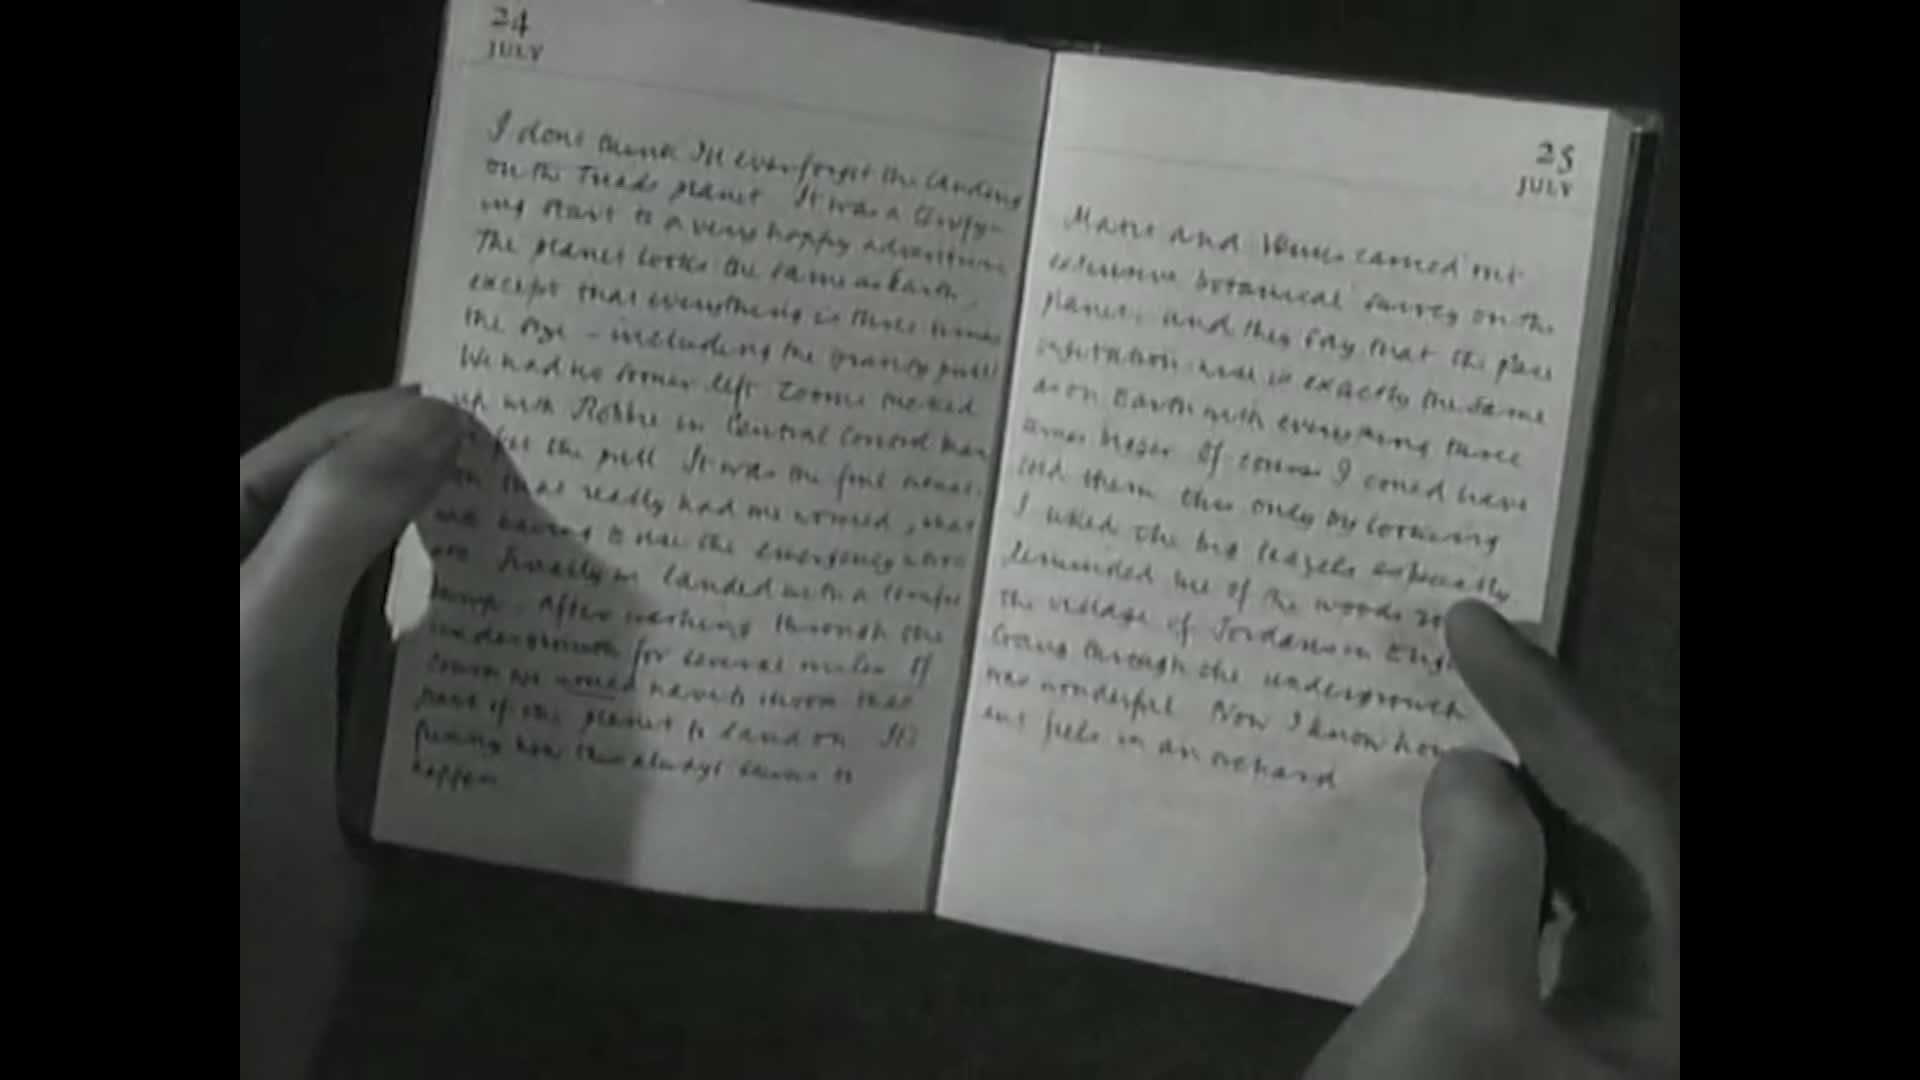 24
JULY
I dont think I'll ever forget the landing
on the Triads planet It was a terify-
ing start to a very happy adventure
The planet looks the same as Earth,
except that everything is three times
the size - including the gravity pull!
We had no sooner left Zoonie
up with Robbie in Central Control than
felt the pull It was the
that really had me worried, what
having to use the emergency
Finally we landed with a
bump. After crashing through the
undergrowth for several miles Of
course we would have to choose that
part of the planet to land on It's
funny how this always seems to
happen
25
JULY
Matic and Venus carried out
extensive botanical survey on the
planet, and they say that the plant
is exactly the same
as on Earth with everything three
times bigger Of course I could have
told them this only by looking
I liked the big especially
reminded me of the woods
the village of Jordans in
Going through the undergrowth
was wonderful Now I know how
ant feels in an orchard